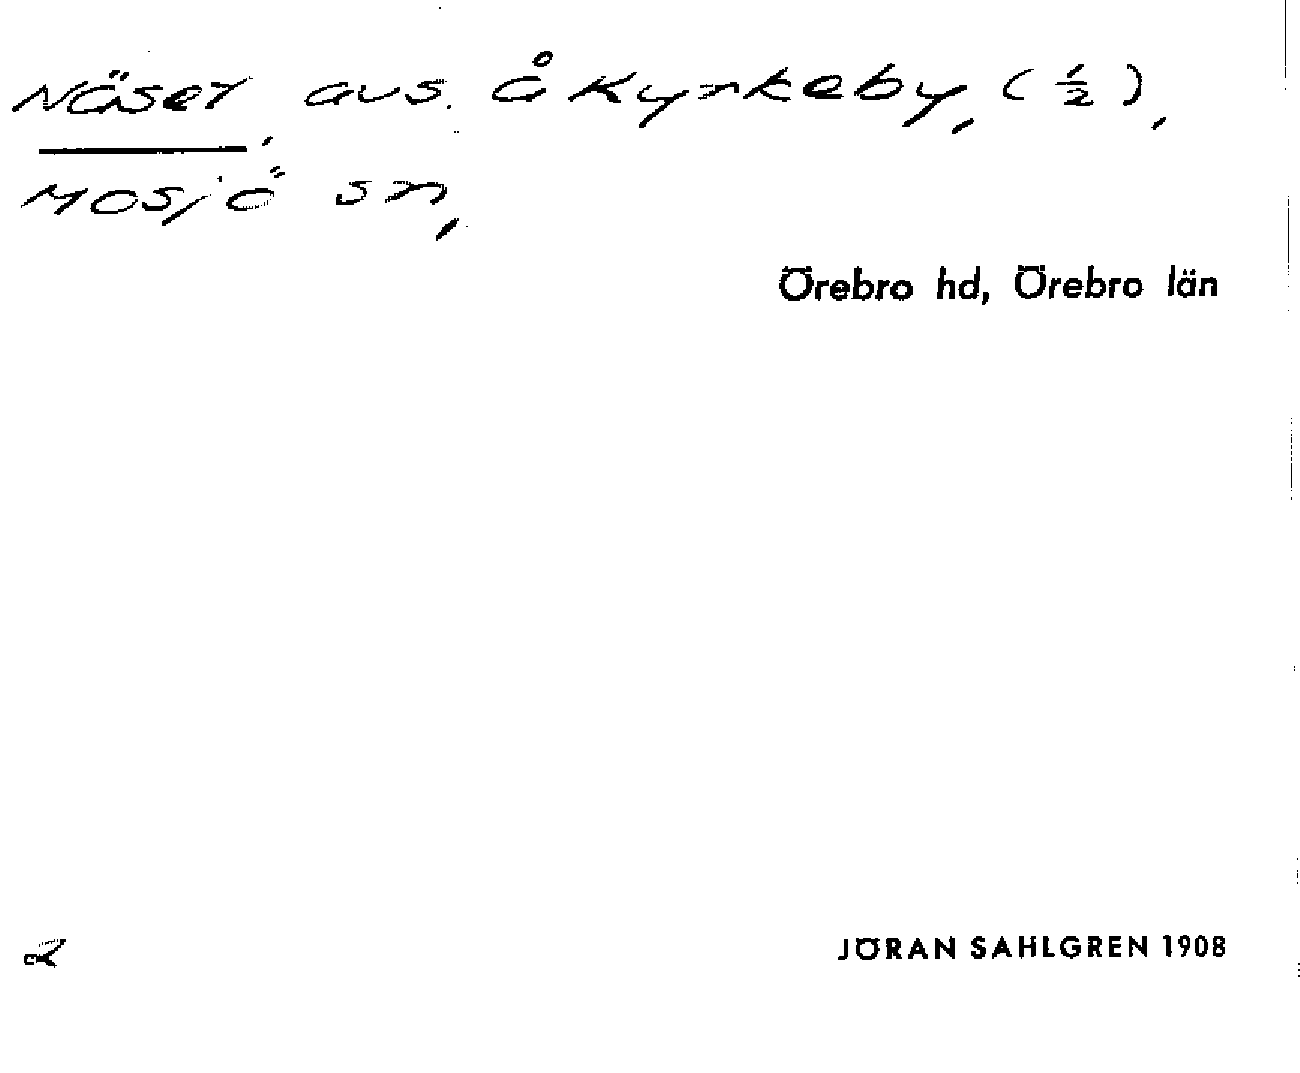 Näset, avs. å Kyrkeby, (½),
Mosjö sn,
Örebro hd, Örebro län
JÖRAN SAHLGREN 1908